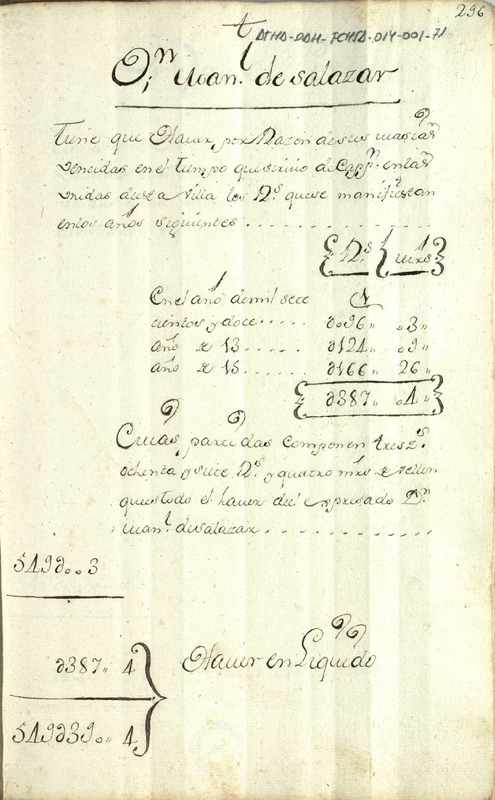 296
DTHD-DDH-FCHTD-014-001-71
Dn Juan de Salazar
Tiene que Hauer, por Razon de sus
vencidas en el tiempo que siruio de Cappn en las
unidas de esta Villa los Rs que se manifiestan
en los años siguientes
Rs mrs
En el año de mil sete
cientos y doce ..... 096 03
año de 13 ..... 124 09
año de 15 ..... 166 26
387 04
Cuias parcidas componen tress
ochenta y siete Rs y quatro mrs de vellon
que es todo el hauer del expresado Dn
Juan de Salazar
549 3
387 4 Hauer en Liquido
549 39 4